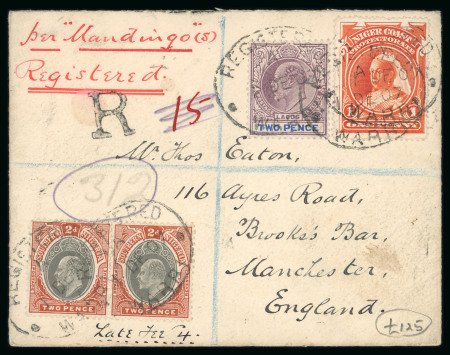 per "Mandingo" (s)
Registered.
R
15
REGISTERED
WARRI
LAGOS
TWO PENCE
NIGER COAST
PROTECTORATE
Mr. Thos Eaton,
312
116 Ayres Road,
Brooks's Bar,
Manchester,
England.
REGISTERED
WARRI
2d 2d
TWO PENCE TWO PENCE
Late Fee 4.
£125